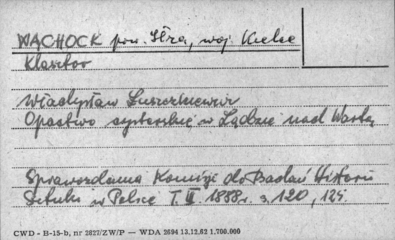 WĄCHOCK pow. Iłża, woj. Kielce
Klasztor
Władysław Łuszczkiewicz
Opactwo cysterskie w Lądzie nad Wartą
Sprawozdania Komisji do Badań Historii
Sztuki w Polsce T. III. 1888 r. s. 120, 124.
CWD - B-15-b, nr 2827/ZW/P — WDA 2694 13.12.62 1.700.000